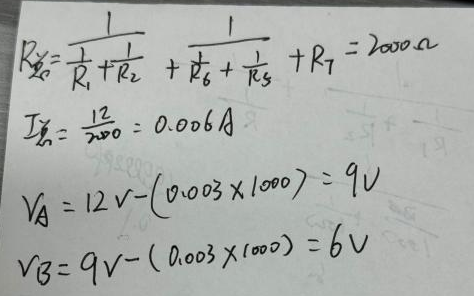 R总 = 1/(1/R₁ + 1/R₂) + 1/(1/R₆ + 1/R₅) + R₇ = 2000Ω
I总 = 12/2000 = 0.006A
VA = 12V-(0.003×1000) = 9V
VB = 9V-(0.003×1000) = 6V